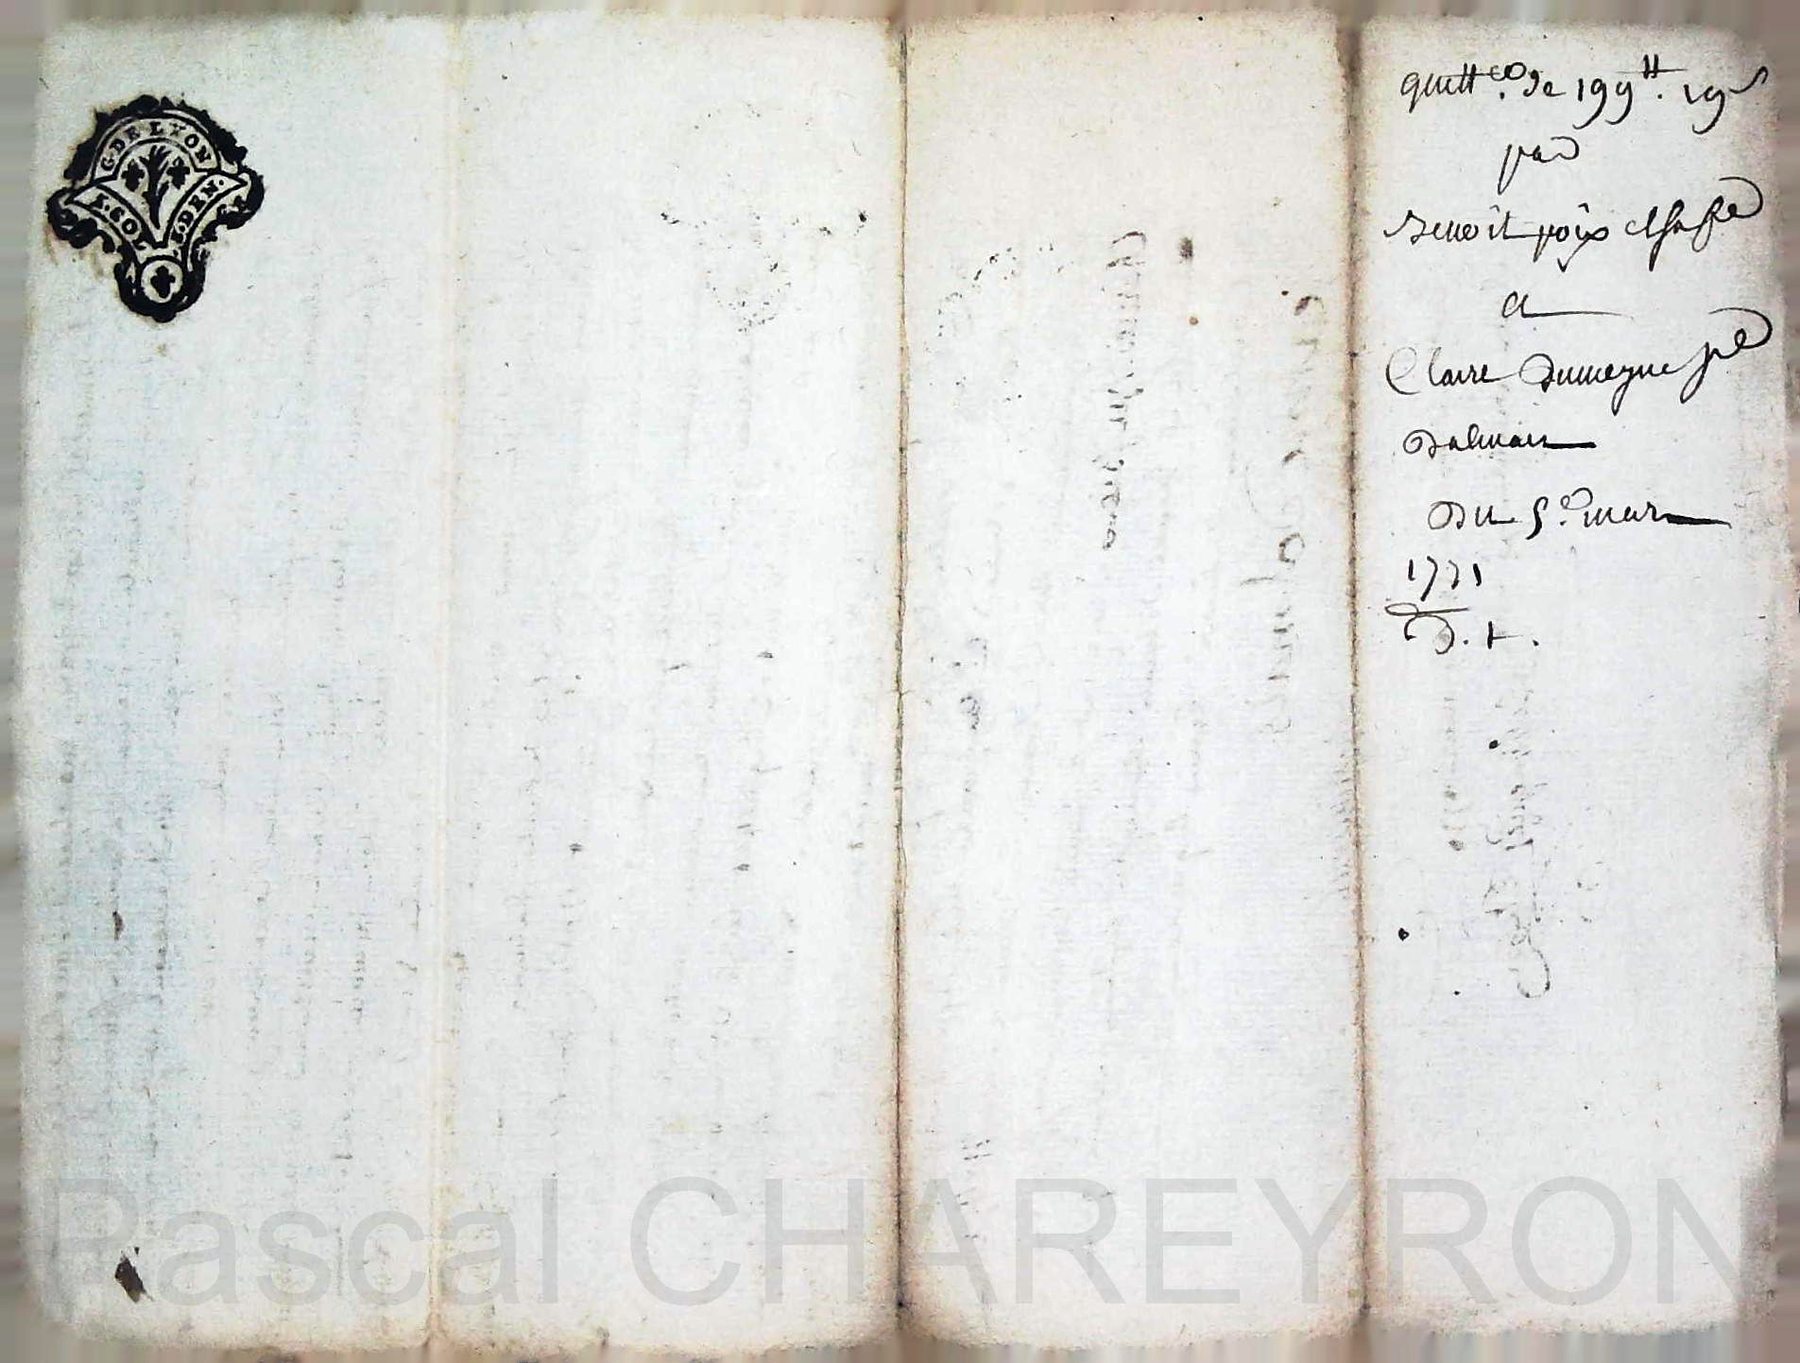 G. DE LYON
2. SOL 8. DEN.
quittce. de 199ᵗᵗ. 19ˢ
par
Benoît
a
Claire Dumeyne
Dalmais
Du 5e. mars
1771
D. t.
Pascal CHAREYRON